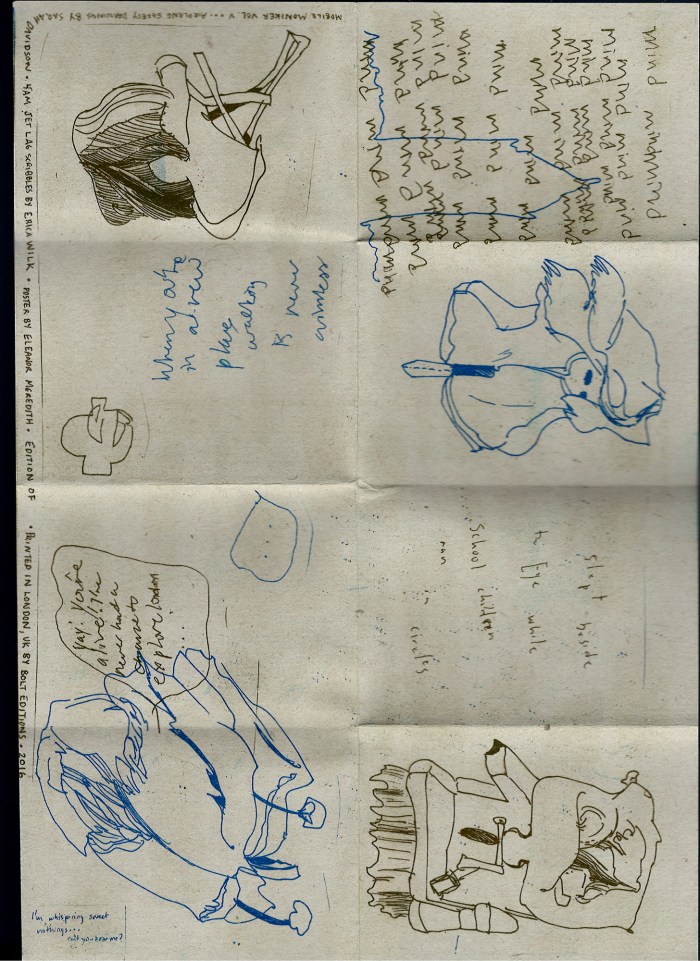 MOBILE MONIKER VOL. V ... AIRPLANE SAFETY DRAWINGS BY SARAH
DAVIDSON • 4AM JET LAG SCRIBBLES BY ERICA WILK • POSTER BY ELEANOR MEREDITH • EDITION OF • PRINTED IN LONDON, UK BY BOLT EDITIONS • 2016
mind mindmind
mind mind mind
mind mind mind
mind mind mind
mind mind mind
mind mind mind
mind mind mind
mind mind mind
mind mind mind
mind mind mind
mind mind mind
in a new
place
walking
is never
aimless
slept beside
te Eye while
school children
ran in circles
yay! you're
alive! I've
never had a
chance to
explore london
...
I'm whispring sweet
nothings...
can't you hear me?